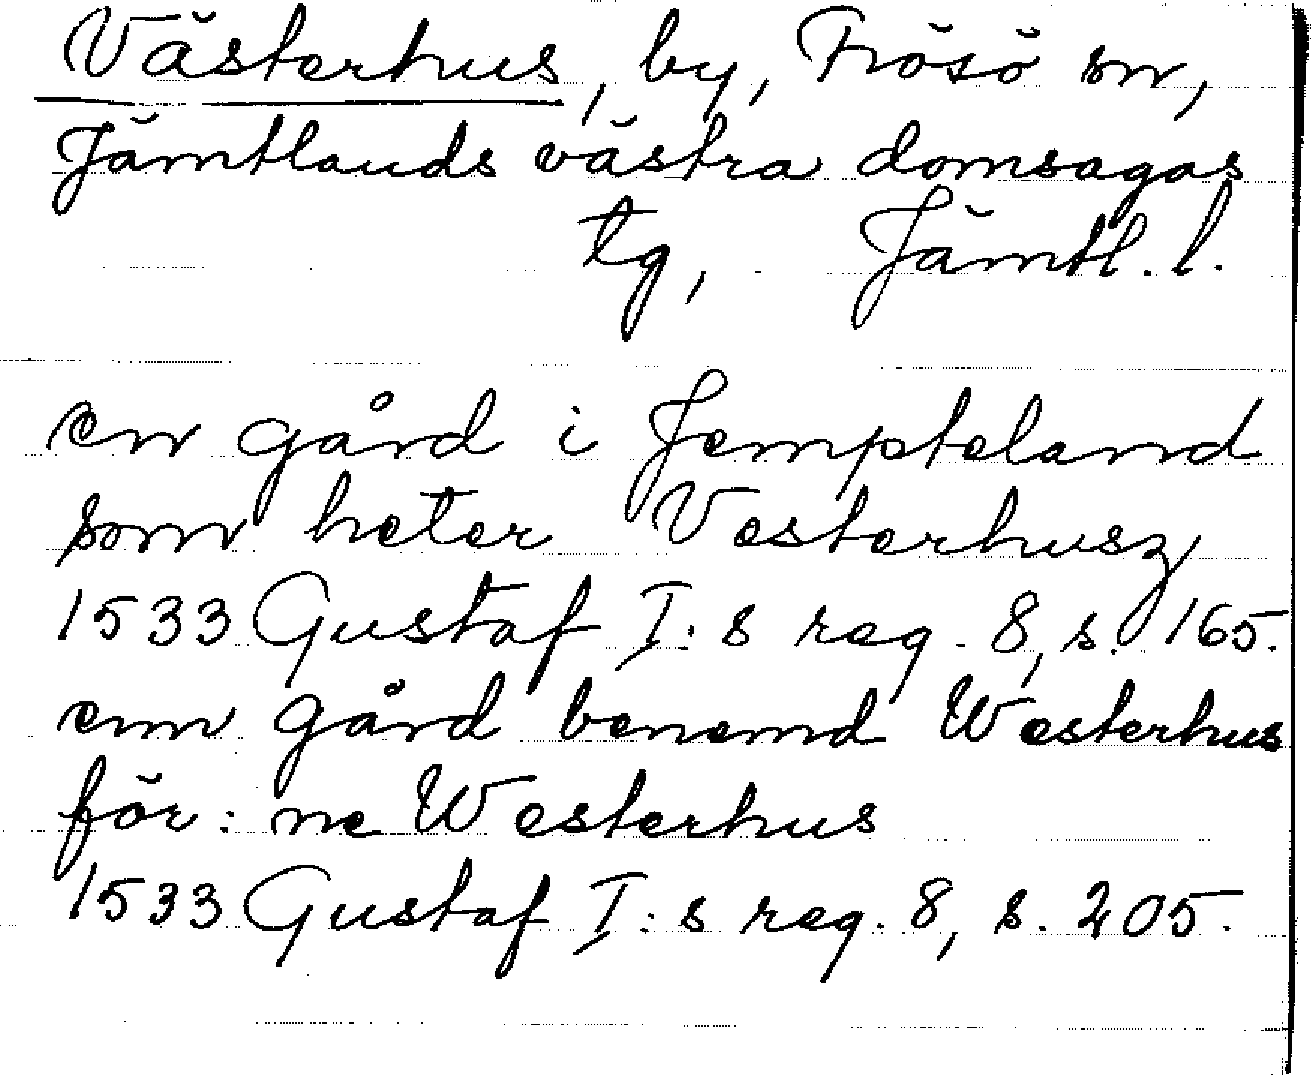 Västerhus, by, Frösö sn,
Jämtlands västra domsagas
tg, Jämtl. l.
en gård i Jempteland
som heter Vesterhusz
1533 Gustaf I:s reg. 8, s. 165.
enn gård benemd Westerhus
för:ne Westerhus
1533 Gustaf I:s reg. 8, s. 205.